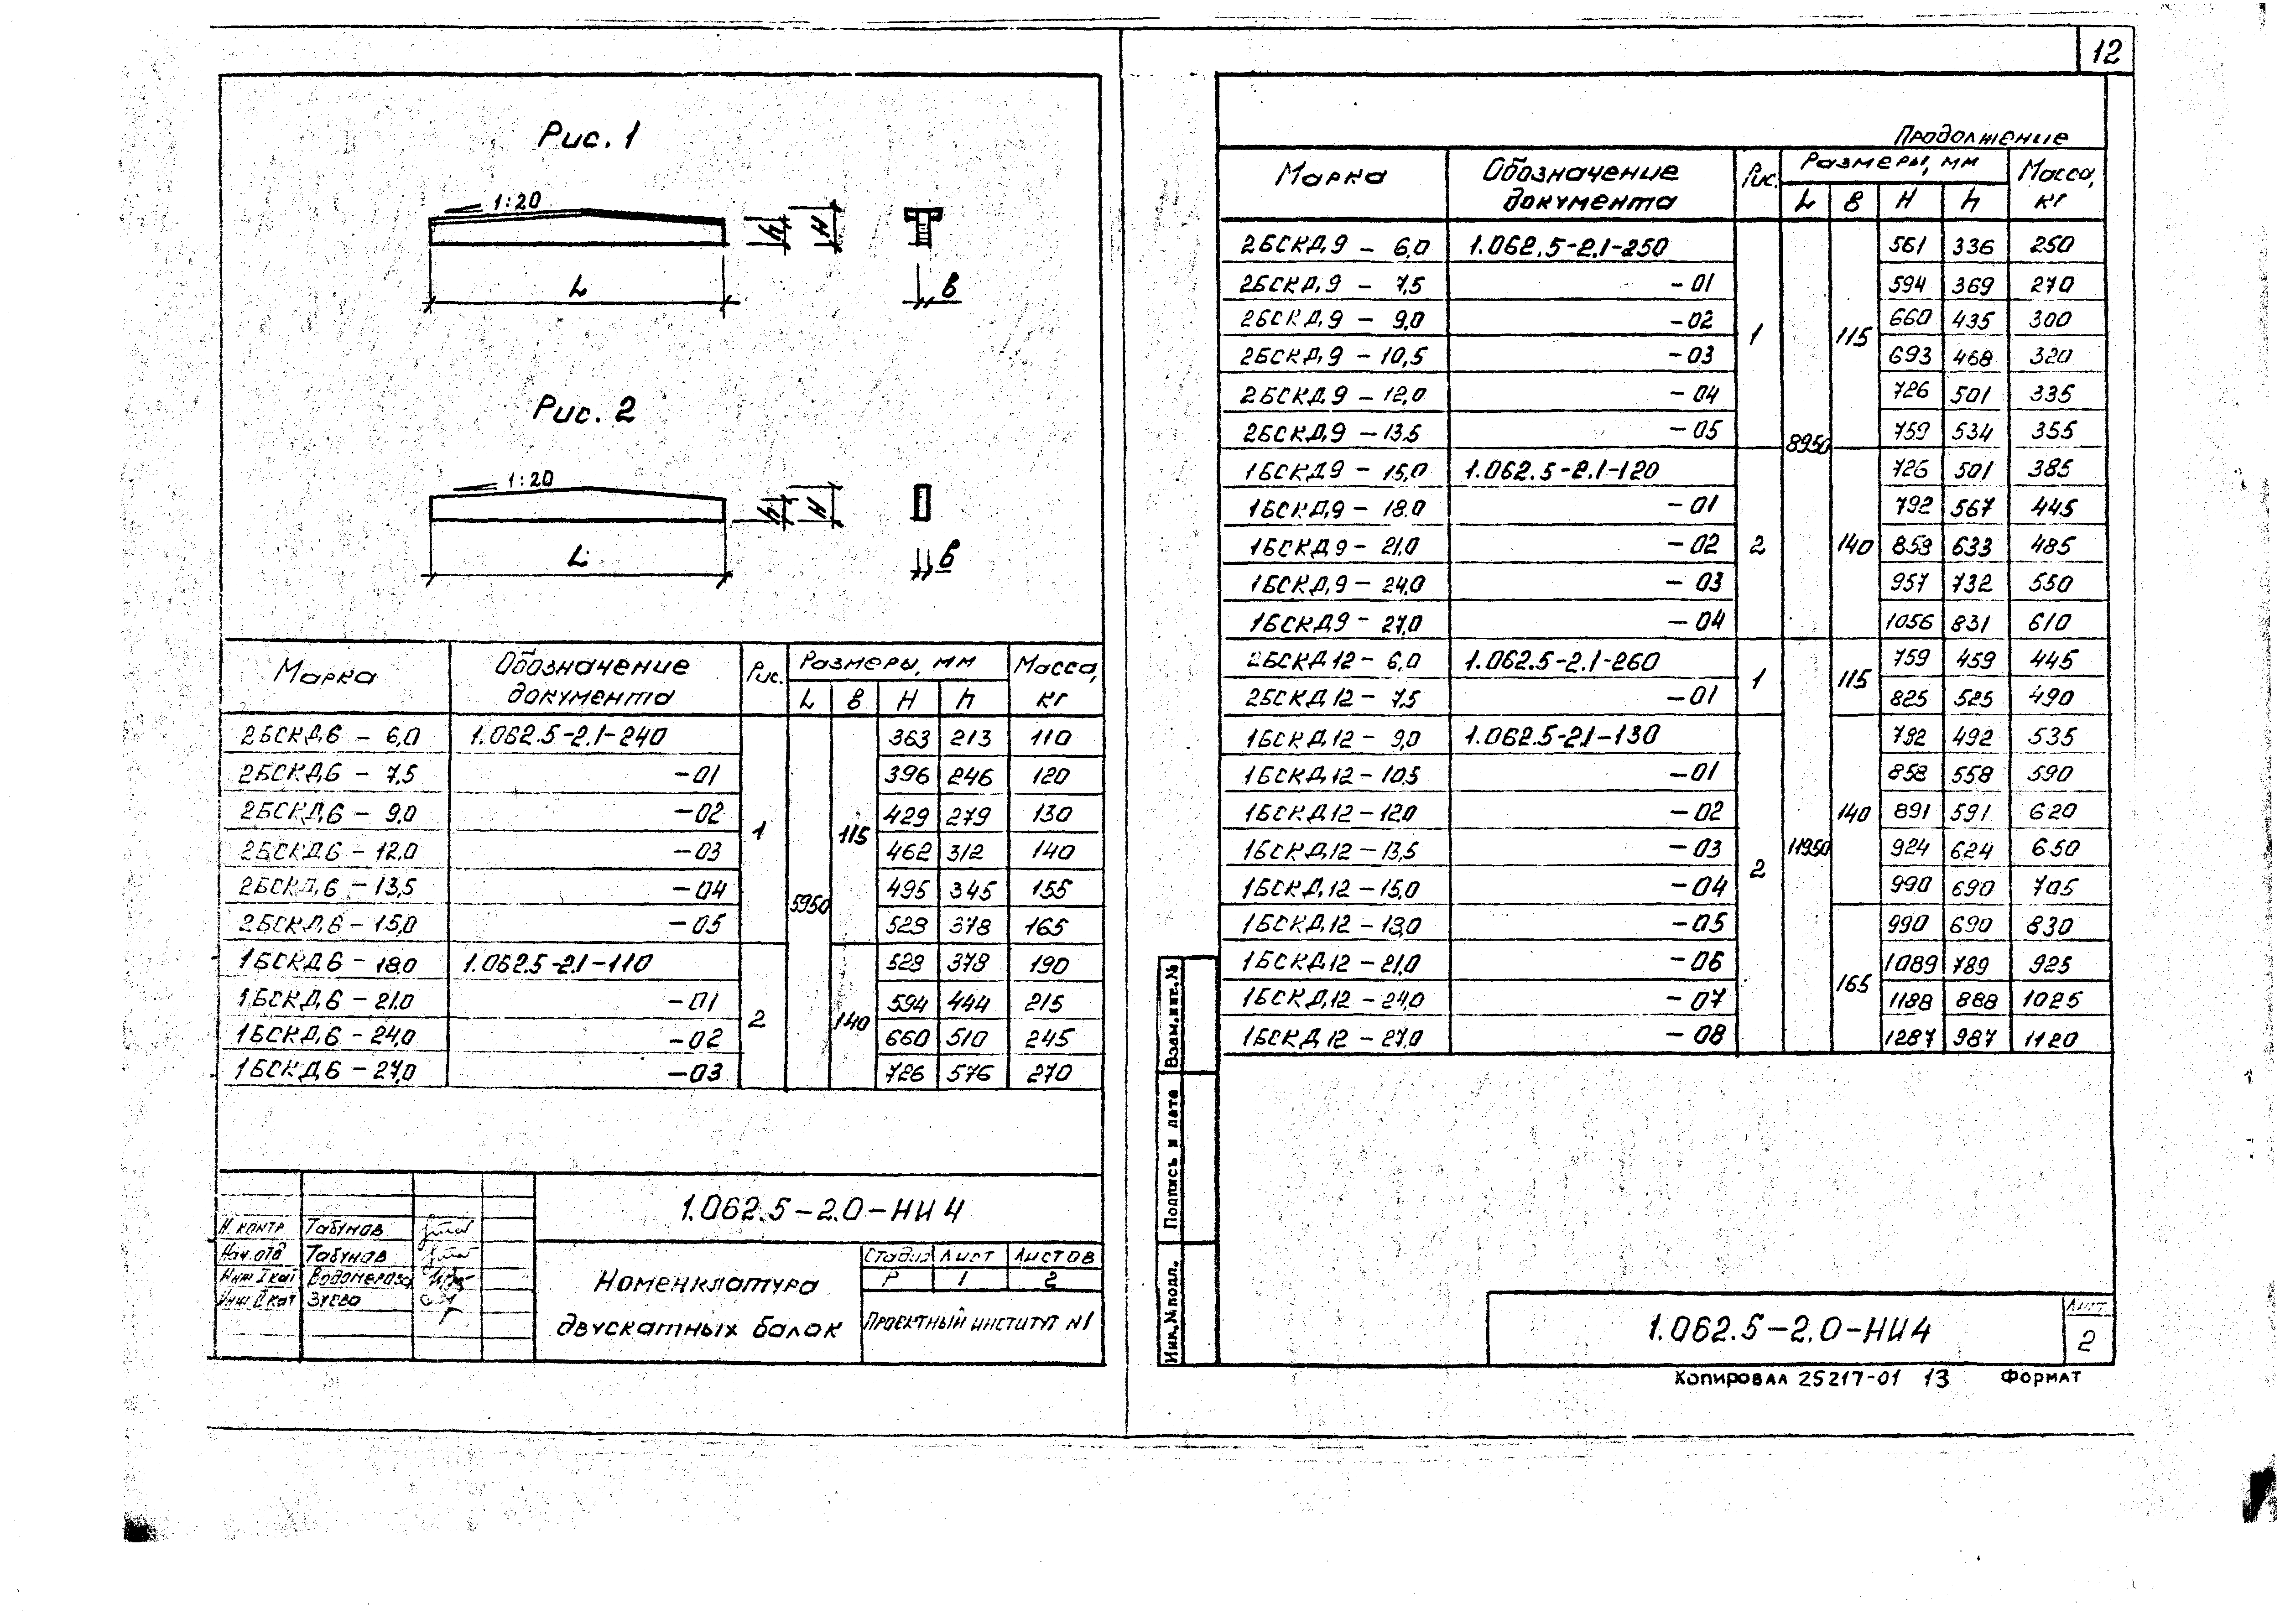 12
Рис. 1
1:20
h
H
L
в
Рис. 2
1:20
h
H
L
в
Марка Обозначение документа Рис. Размеры, мм Масса, кг
L в H h
2БСКД6 – 6,0 1.062.5-2.1-240 1 5950 115 363 213 110
2БСКД6 – 7,5 -01 396 246 120
2БСКД6 – 9,0 -02 429 279 130
2БСКД6 – 12,0 -03 462 312 140
2БСКД6 – 13,5 -04 495 345 155
2БСКД6 – 15,0 -05 528 378 165
1БСКД6 – 18,0 1.062.5-2.1-110 2 140 528 378 190
1БСКД6 – 21,0 -01 594 444 215
1БСКД6 – 24,0 -02 660 510 245
1БСКД6 – 27,0 -03 726 576 270
1.062.5-2.0-НИ4
Н.контр Табунов
Нач.отд Табунов
Инж I кат
Инж II кат Зуева
Номенклатура
двускатных балок
Стадия Лист Листов
Р 1 2
Проектный институт №1
Продолжение
Марка Обозначение документа Рис. Размеры, мм Масса, кг
L в H h
2БСКД9 – 6,0 1.062.5-2.1-250 1 8950 115 561 336 250
2БСКД9 – 7,5 -01 594 369 270
2БСКД9 – 9,0 -02 660 435 300
2БСКД9 – 10,5 -03 693 468 320
2БСКД9 – 12,0 -04 726 501 335
2БСКД9 – 13,5 -05 759 534 355
1БСКД9 – 15,0 1.062.5-2.1-120 2 140 726 501 385
1БСКД9 – 18,0 -01 792 567 445
1БСКД9 – 21,0 -02 859 633 485
1БСКД9 – 24,0 -03 957 732 550
1БСКД9 – 27,0 -04 1056 831 610
2БСКД12 – 6,0 1.062.5-2.1-260 1 11950 115 759 459 445
2БСКД12 – 7,5 -01 825 525 490
1БСКД12 – 9,0 1.062.5-2.1-130 2 140 792 492 535
1БСКД12 – 10,5 -01 858 558 590
1БСКД12 – 12,0 -02 891 591 620
1БСКД12 – 13,5 -03 924 624 650
1БСКД12 – 15,0 -04 990 690 705
1БСКД12 – 18,0 -05 165 990 690 830
1БСКД12 – 21,0 -06 1089 789 925
1БСКД12 – 24,0 -07 1188 888 1025
1БСКД12 – 27,0 -08 1287 987 1120
Взам.инв.№
Подпись и дата
Инв.№ подл.
1.062.5-2.0-НИ4
Лист
2
Копировал 25217-01 13 Формат